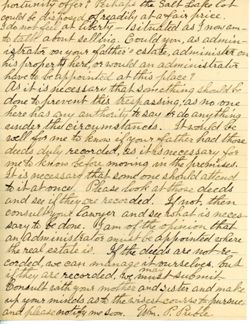 portunity offer? Perhaps the Salt Lake lot
could be disposed of readily at a fair price.
Do not feel at liberty - situated as I now am -
to talk about selling. Could you, as admin-
istrator on your father's estate, administer on
his property here, or would an administrator
have to be appointed at this place?
As it is necessary that something should be
done to prevent this trespassing, as no one
here has any authority to say or do anything
under the circumstances. It would be
well for me to know if your father had those
deeds duly recorded, as it is necessary for
me to know before moving in the premises.
It is necessary that some one should attend
to it at once. Please look at those deeds
and see if they are recorded. If not, then
consult your lawyer and see what is neces-
sary to be done. I am of the opinion that
an administrator must be appointed where
the real estate is. If the deeds are not re-
corded, we can manage it ourselves, but
if they are recorded, we must submit.
Consult with your mother and sister and make
up your minds as to the wisest course to pursue
and please notify me soon. Wm. P.